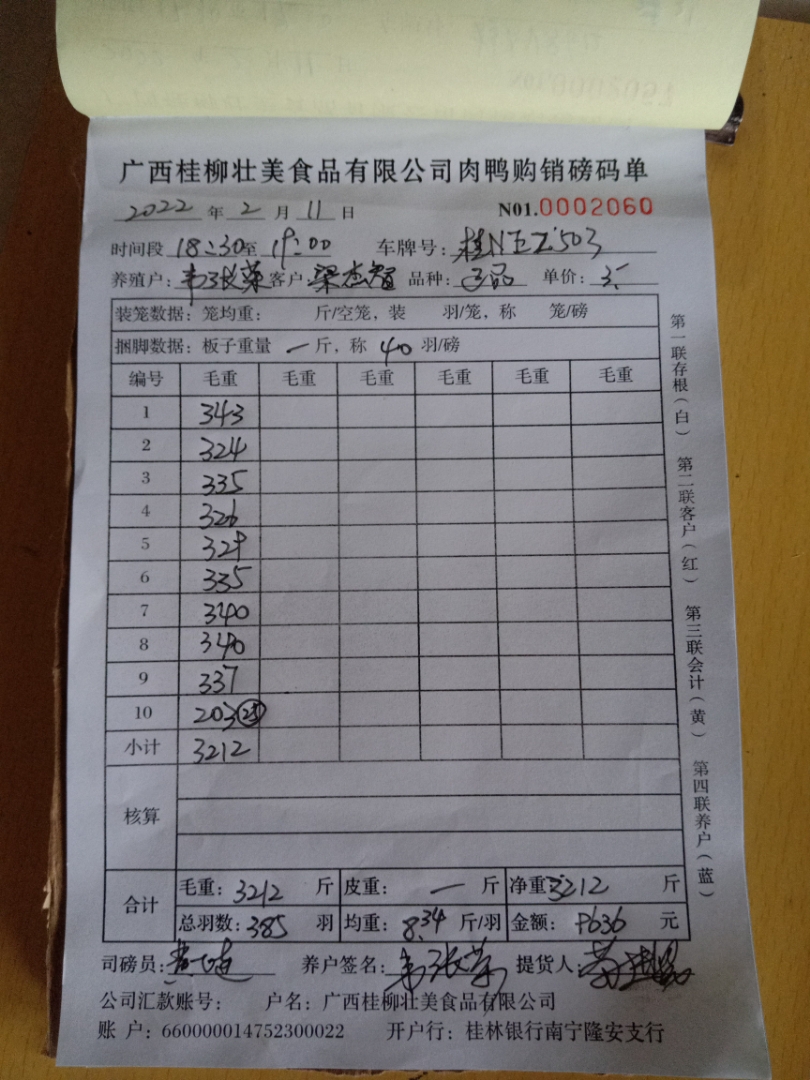 广西桂柳壮美食品有限公司肉鸭购销磅码单
2022 年 2 月 11 日 N01.0002060
时间段 18:30至 19:00 车牌号: 桂NEZ503
养殖户: 客户: 梁杰智 品种: 正品 单价: 3.
装笼数据: 笼均重: 斤/空笼, 装 羽/笼, 称 笼/磅
捆脚数据: 板子重量 一 斤, 称 40 羽/磅
编号 毛重 毛重 毛重 毛重 毛重 毛重
1 343
2 324
3 335
4 326
5 329
6 335
7 340
8 340
9 337
10 203 (25)
小计 3212
核算
合计 毛重: 3212 斤 皮重: 一 斤 净重: 3212 斤
总羽数: 385 羽 均重: 8.34 斤/羽 金额: 9636 元
司磅员: 养户签名: 提货人:
公司汇款账号: 户名: 广西桂柳壮美食品有限公司
账 户: 660000014752300022 开户行: 桂林银行南宁隆安支行
第一联存根(白) 第二联客户(红) 第三联会计(黄) 第四联养户(蓝)